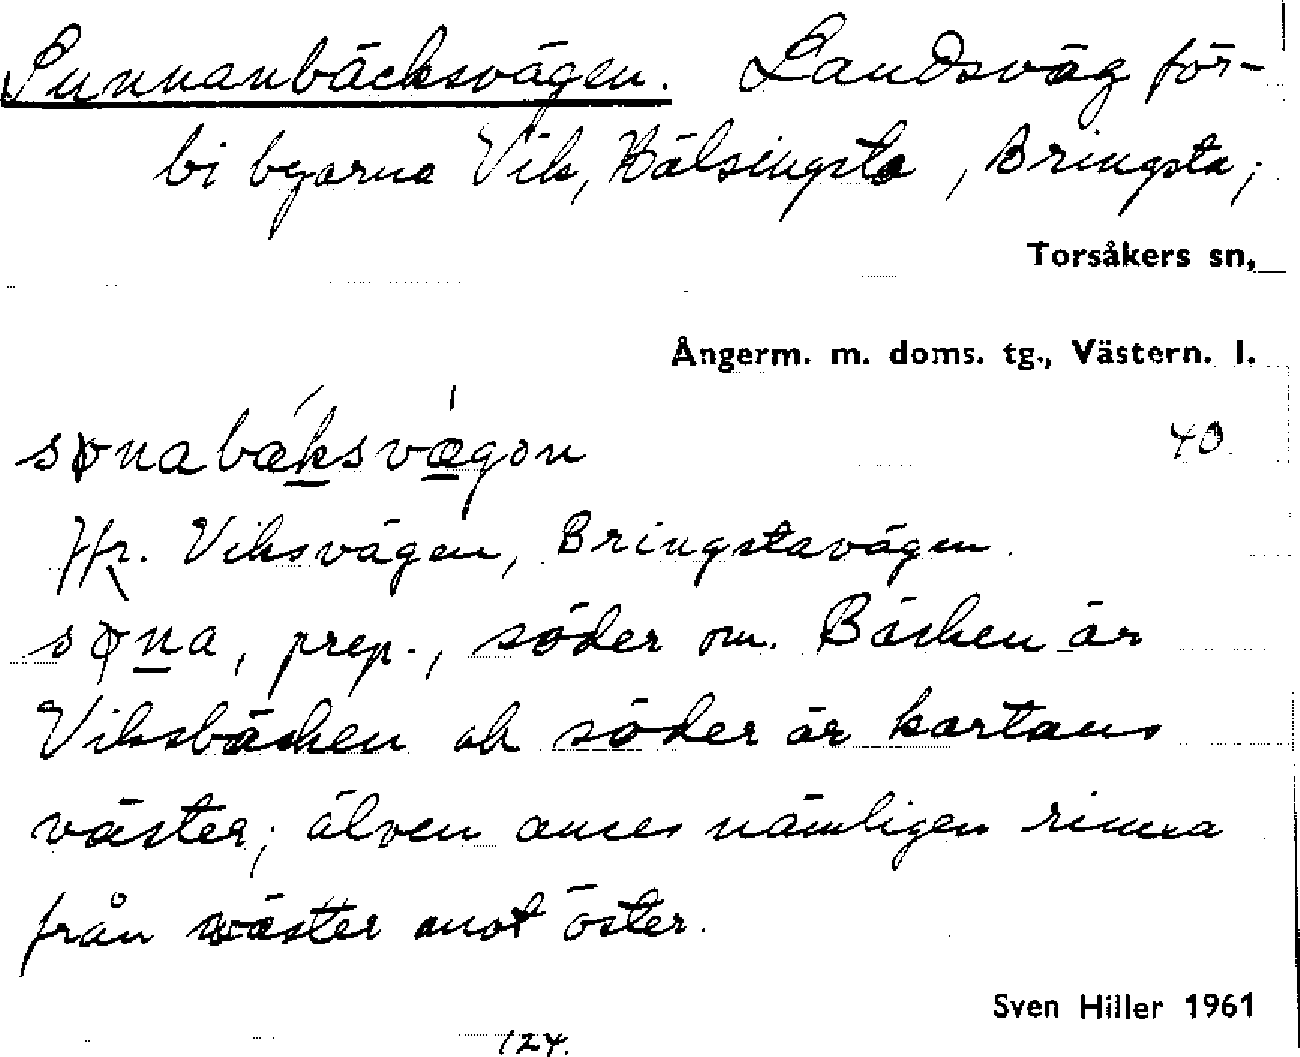 Sunnanbäcksvägen. Landsväg för-
bi byarna Vik, Hälsingsta, Bringsta;
Torsåkers sn,
Ångerm. m. doms. tg., Västern. l.
sønabæksvægən
40
Jfr. Viksvägen, Bringstavägen.
søna, prep., söder om. Bäcken är
Viksbäcken och söder är kartans
väster; älven anses nämligen rinna
från väster mot öster.
Sven Hiller 1961
124.